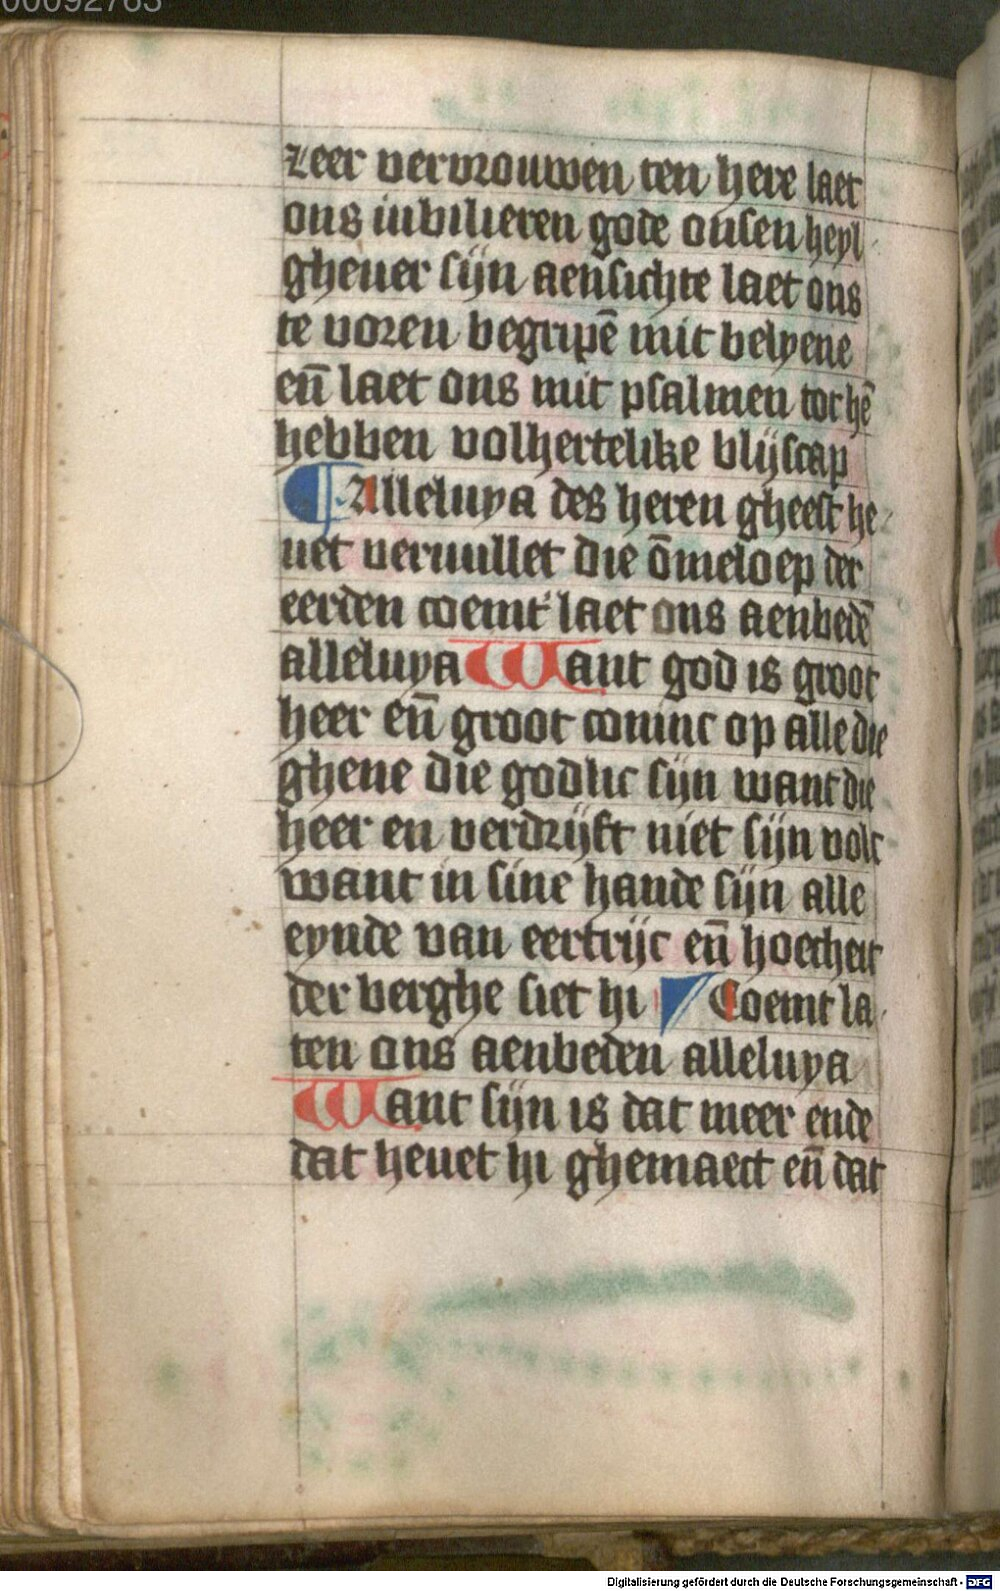 00092763
zeer vervrouwen ten here laet
ons iubilieren gode onsen heyl
gheuer sijn aensichte laet ons
te voren begripē mit belyene
en̄ laet ons mit psalmen tot hē
hebben volhertelike blijscap
¶ Alleluya des heren gheest he
uet veruullet die ōmeloep der
eerden coemt laet ons aenbedē
alleluya Want god is groot
heer en̄ groot coninc op alle die
ghene die godlic sijn want die
heer en verdrijft niet sijn volc
want in sine hande sijn alle
eynde van eertrijc en̄ hoecheit
der berghe siet hi Coemt la
ten ons aenbeden alleluya
Want sijn is dat meer ende
dat heuet hi ghemaect en̄ dat
Digitalisierung gefördert durch die Deutsche Forschungsgemeinschaft - DFG